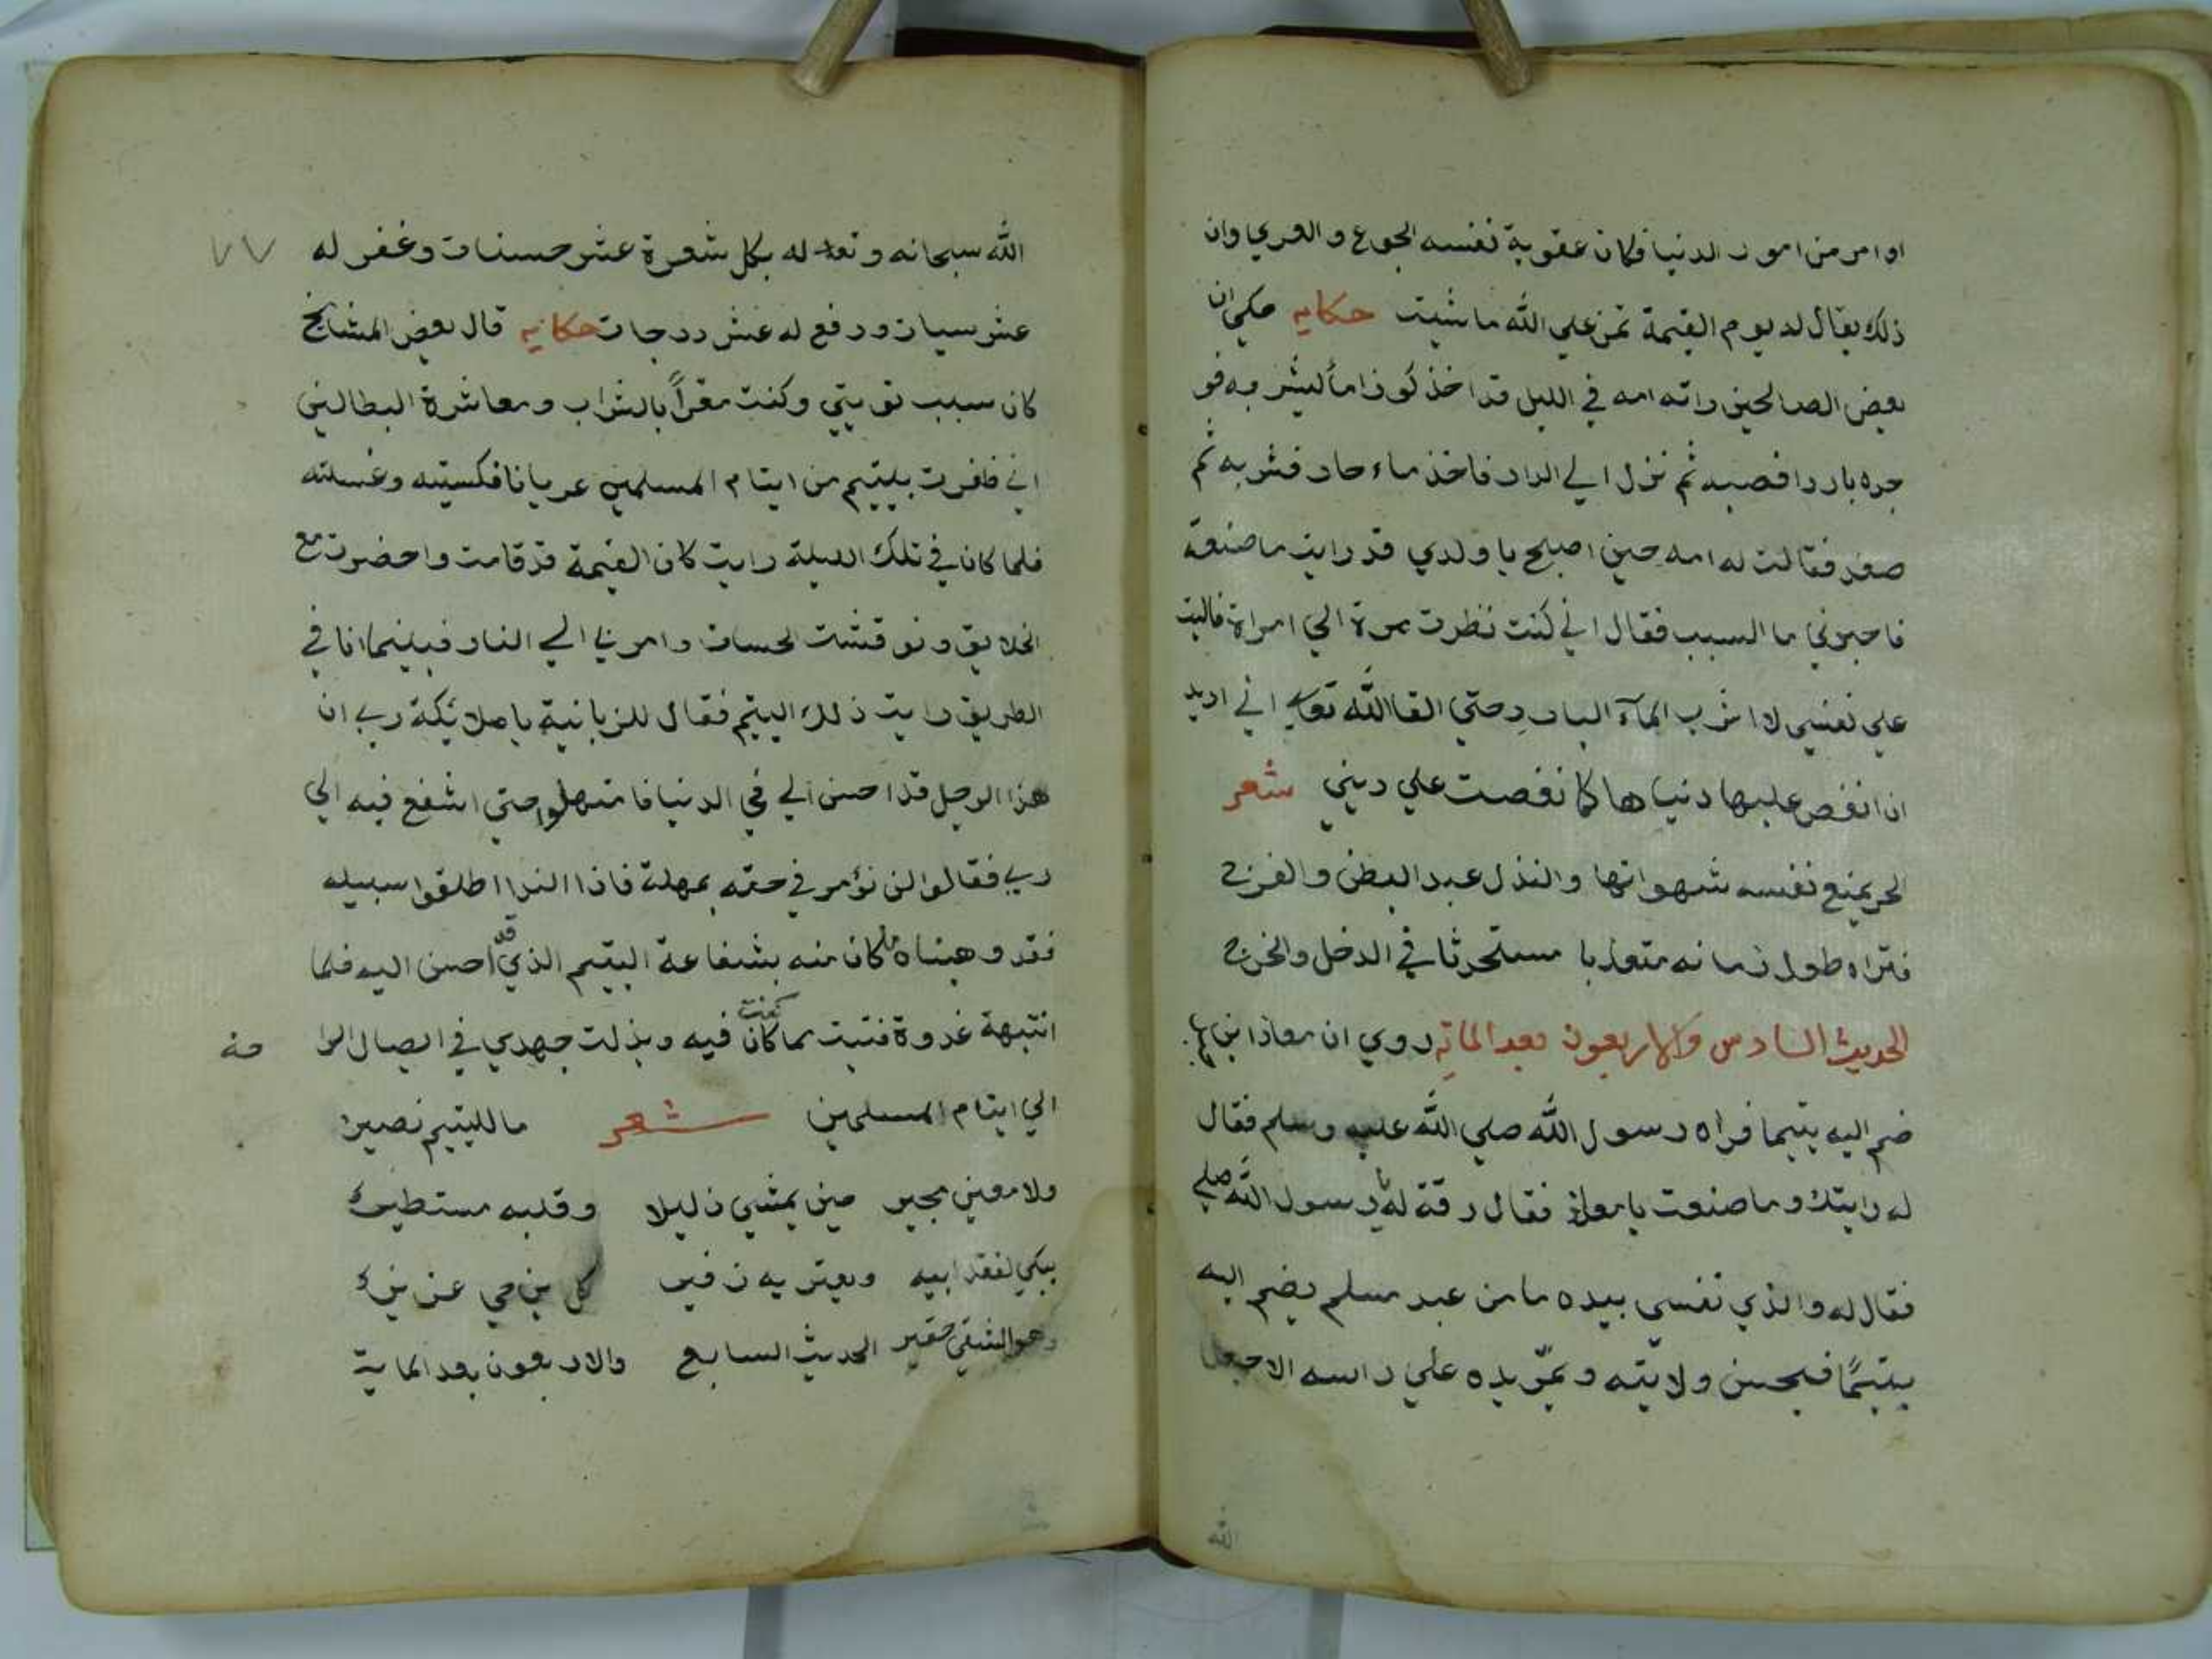 او امر من امور الدنيا فكان عقوبة نفسه الجوع والعري وان
ذلك يقال له يوم القيمة تمن علي الله ما شيت حكايه حكي ان
بعض الصالحين راته امه في الليل قد اخذ كوزا ماً ليشربه فو
جده باردا فصبه ثم نزل الي الدار فاخذ ماء حار فشربه ثم
صعد فقالت له امه حين اصبح يا ولدي قد رايت ما صنعته
فاخبرني ما السبب فقال اني كنت نظرت مرة الي امراة فاليت
علي نفسي لا اشرب المآء البارد حتي القا الله تعالي اني اريد
ان انغص عليها دنياها كما نغصت علي ديني شعر
الحر يمنع نفسه شهواتها والنذل عبد البطن والفرج
فتراه طول زمانه متعذبا مستحرثا في الدخل والخرج
الحديث السادس والاربعون بعد الماتة روي ان معاذا ابن
ضم اليه يتيما فراه رسول الله صلي الله عليه وسلم فقال
له رايتك وما صنعت يا معاذ فقال رقة له يا رسول الله صلي
فقال له والذي نفسي بيده ما من عبد مسلم يضم اليه
يتيمًا فيحسن ولايته ويمرّ يده علي راسه الا جعل
الله
٧٧
الله سبحانه وتعالى له بكل شعرة عشر حسنات وغفر له
عشر سيات ورفع له عشر درجات حكايه قال بعض المشايخ
كان سبب توبتي وكنت مقراً بالشراب ومعاشرة البطالين
اني ظفرت بيتيم من ايتام المسلمين عريانا فكسيته وغسلته
فلما كان في تلك الليلة رايت كان القيمة قد قامت واحضرت مع
الخلايق ونوقشت لحساب وامر بي الي النار فبينما انا في
الطريق رايت ذلك اليتيم فقال للزبانية يا ملايكة ربي ان
هذا الرجل قد احسن الي في الدنيا فامتهلوا حتي اشفع فيه الي
ربي فقالوا لن نؤمر في حقه بمهلة فاذا الندا اطلقوا سبيله
فقد وهبناه ما كان منه بشفاعة اليتيم الذي قد احسن اليه فلما
انتبهة غدوة فتبت مما كنت فيه وبذلت جهدي في ايصال الرا
حة
الي ايتام المسلمين شعر ما لليتيم نصير
ولا معين مجير حين يمشي ذليلا وقلبه مستطير
يبكي لفقد ابيه ويعتريه زفير كل عزيز
وهو الشقي حقير الحديث السابع والاربعون بعد الماية